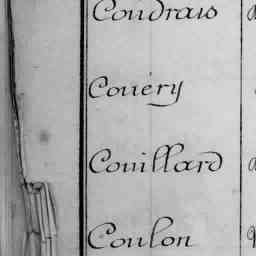 Coudrais
Couëry
Couillard
Coulon